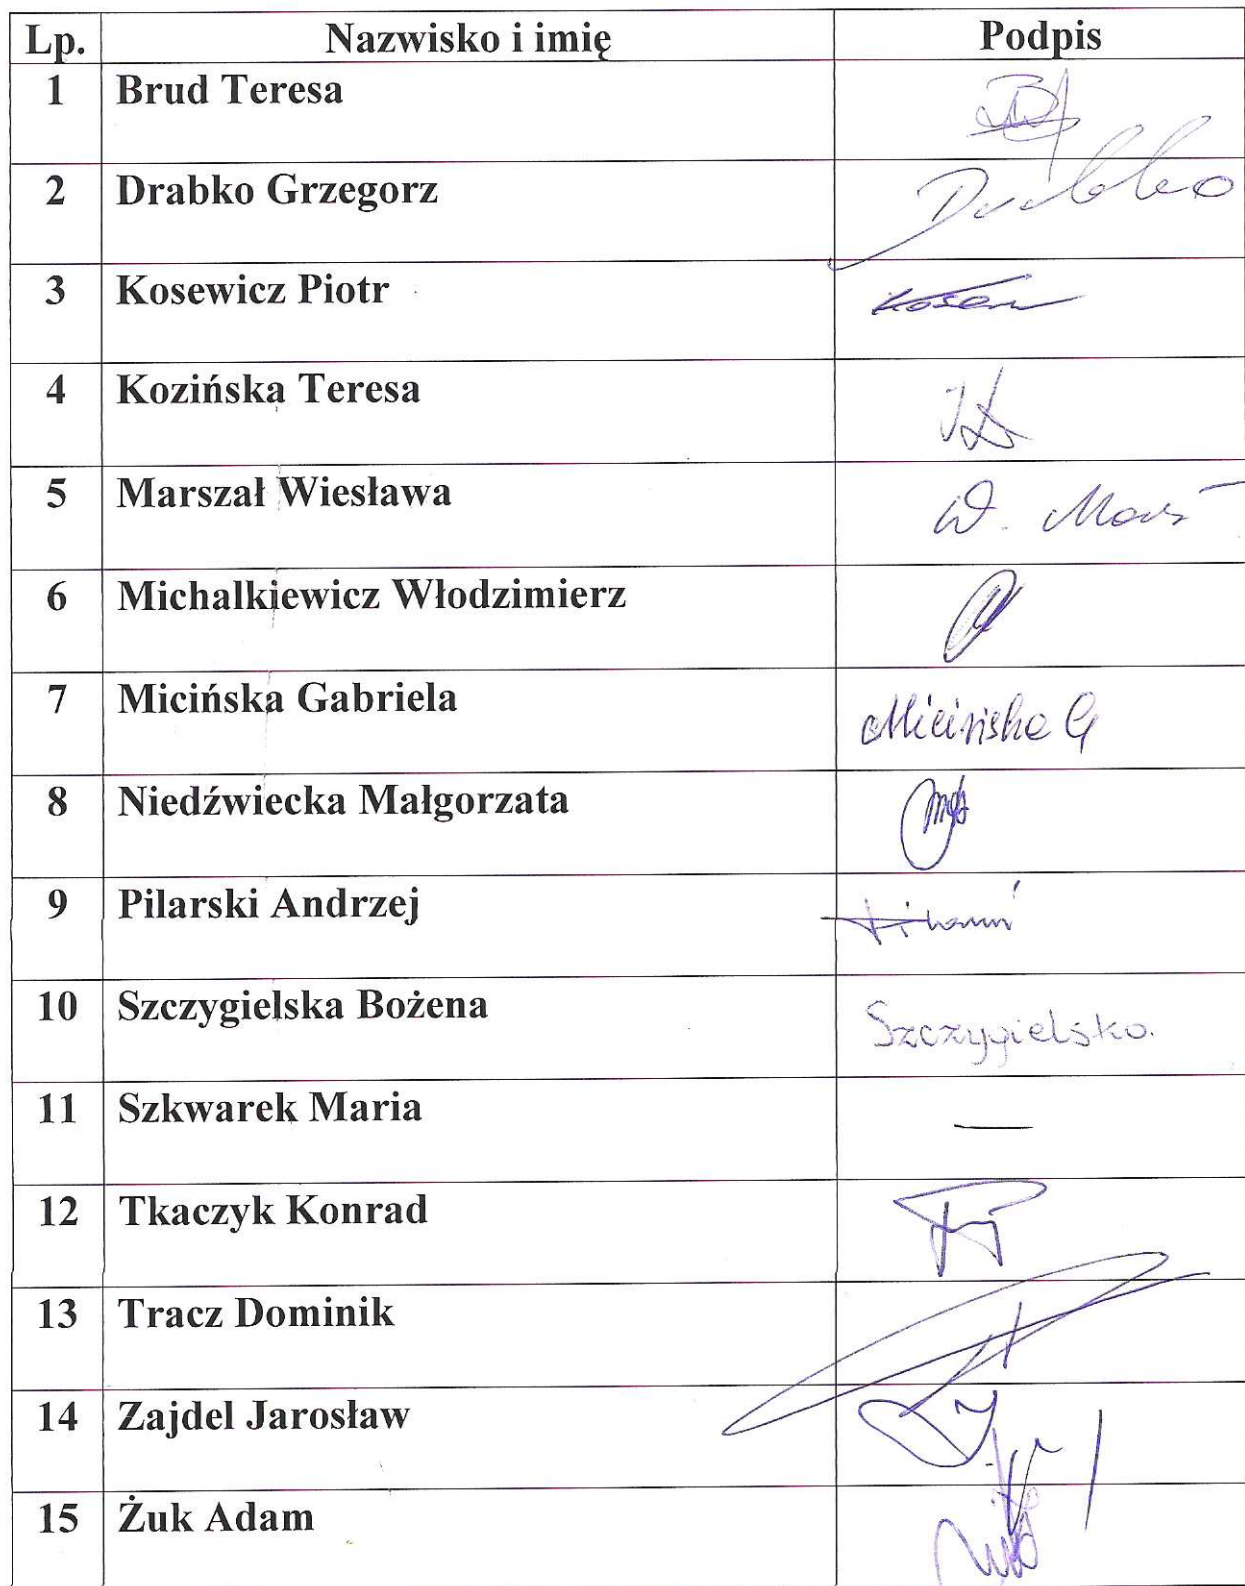 Lp. Nazwisko i imię Podpis
1 Brud Teresa
2 Drabko Grzegorz Drabko
3 Kosewicz Piotr
4 Kozińska Teresa
5 Marszał Wiesława W. Mars
6 Michalkiewicz Włodzimierz
7 Micińska Gabriela Micińska G
8 Niedźwiecka Małgorzata
9 Pilarski Andrzej
10 Szczygielska Bożena Szczygielska.
11 Szkwarek Maria —
12 Tkaczyk Konrad
13 Tracz Dominik
14 Zajdel Jarosław
15 Żuk Adam